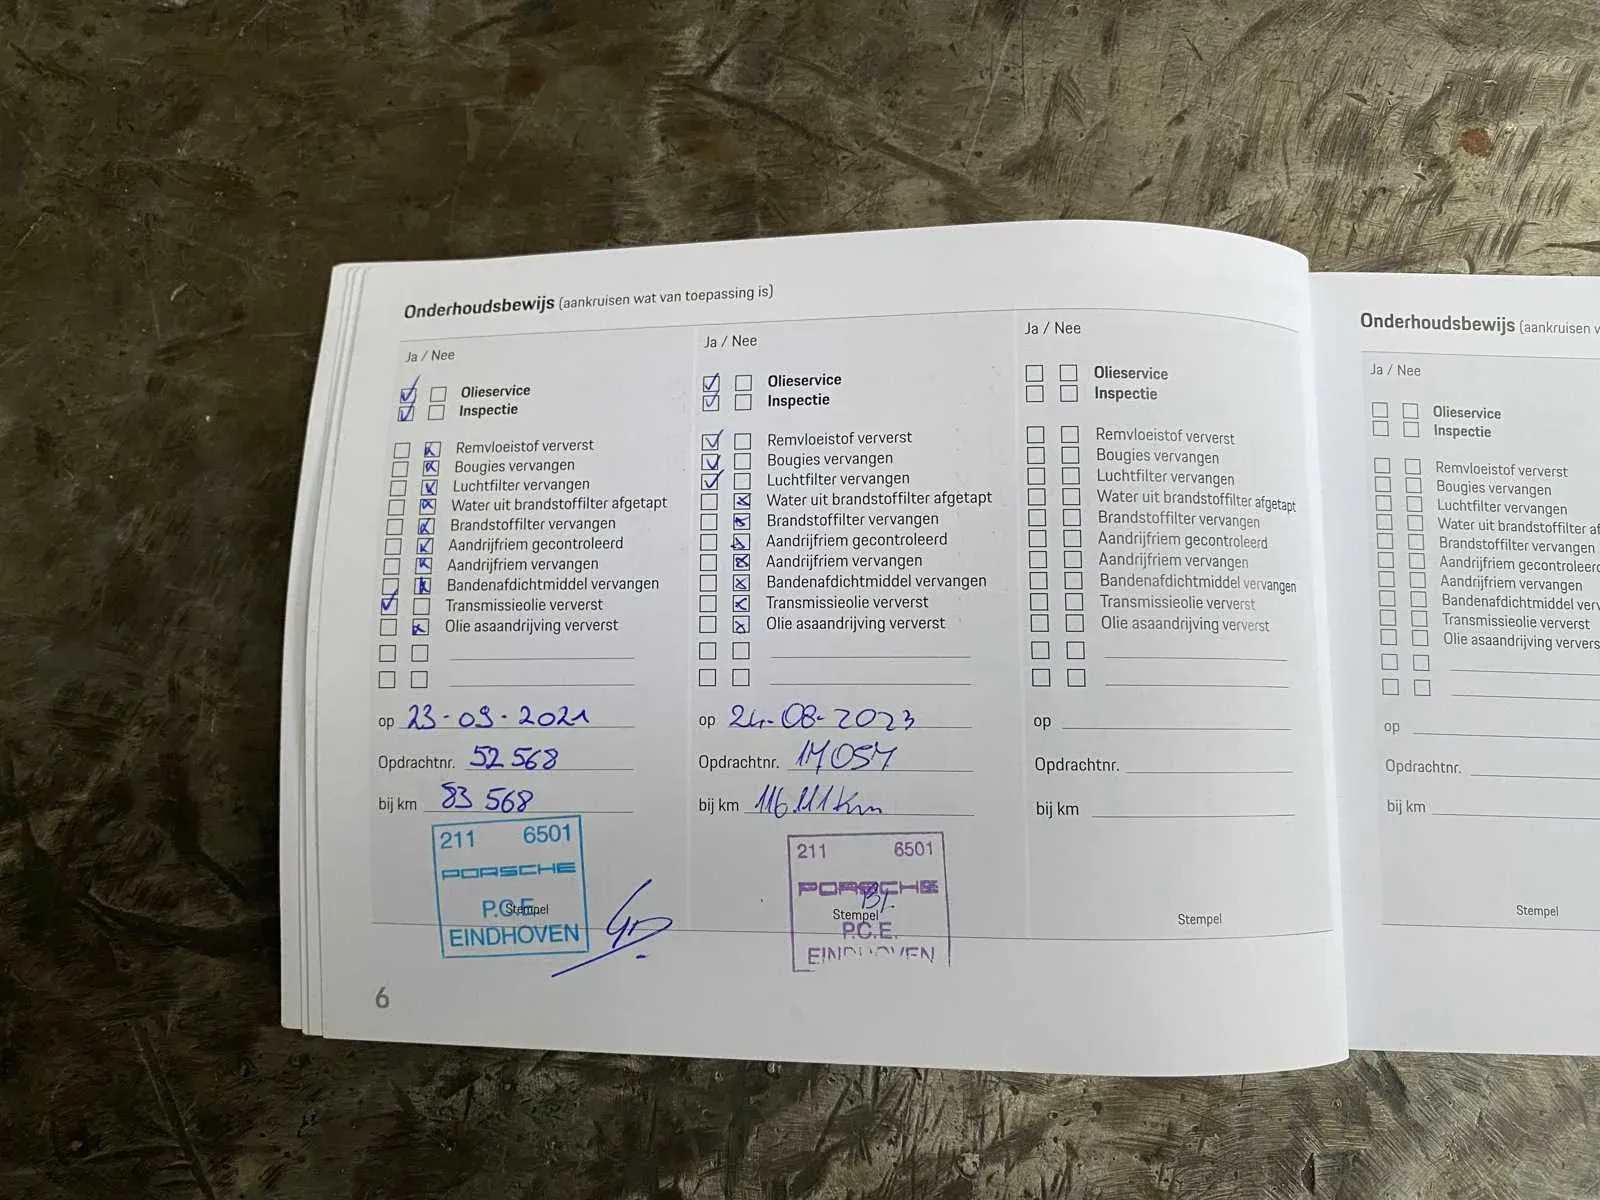 Onderhoudsbewijs (aankruisen wat van toepassing is)
Ja / Nee
Olieservice
Inspectie
Remvloeistof ververst
Bougies vervangen
Luchtfilter vervangen
Water uit brandstoffilter afgetapt
Brandstoffilter vervangen
Aandrijfriem gecontroleerd
Aandrijfriem vervangen
Bandenafdichtmiddel vervangen
Transmissieolie ververst
Olie asaandrijving ververst
op 23-09-2021
Opdrachtnr. 52 568
bij km 83 568
211 6501
PORSCHE
P.C.E.
Stempel
EINDHOVEN
Ja / Nee
Olieservice
Inspectie
Remvloeistof ververst
Bougies vervangen
Luchtfilter vervangen
Water uit brandstoffilter afgetapt
Brandstoffilter vervangen
Aandrijfriem gecontroleerd
Aandrijfriem vervangen
Bandenafdichtmiddel vervangen
Transmissieolie ververst
Olie asaandrijving ververst
op 24-08-2023
Opdrachtnr. 17057
bij km 116.111 km
211 6501
PORSCHE
Stempel
P.C.E.
EINDHOVEN
Ja / Nee
Olieservice
Inspectie
Remvloeistof ververst
Bougies vervangen
Luchtfilter vervangen
Water uit brandstoffilter afgetapt
Brandstoffilter vervangen
Aandrijfriem gecontroleerd
Aandrijfriem vervangen
Bandenafdichtmiddel vervangen
Transmissieolie ververst
Olie asaandrijving ververst
op
Opdrachtnr.
bij km
Stempel
6
Onderhoudsbewijs (aankruisen w
Ja / Nee
Olieservice
Inspectie
Remvloeistof ververst
Bougies vervangen
Luchtfilter vervangen
Water uit brandstoffilter af
Brandstoffilter vervangen
Aandrijfriem gecontroleerd
Aandrijfriem vervangen
Bandenafdichtmiddel verv
Transmissieolie ververst
Olie asaandrijving ververs
op
Opdrachtnr.
bij km
Stempel